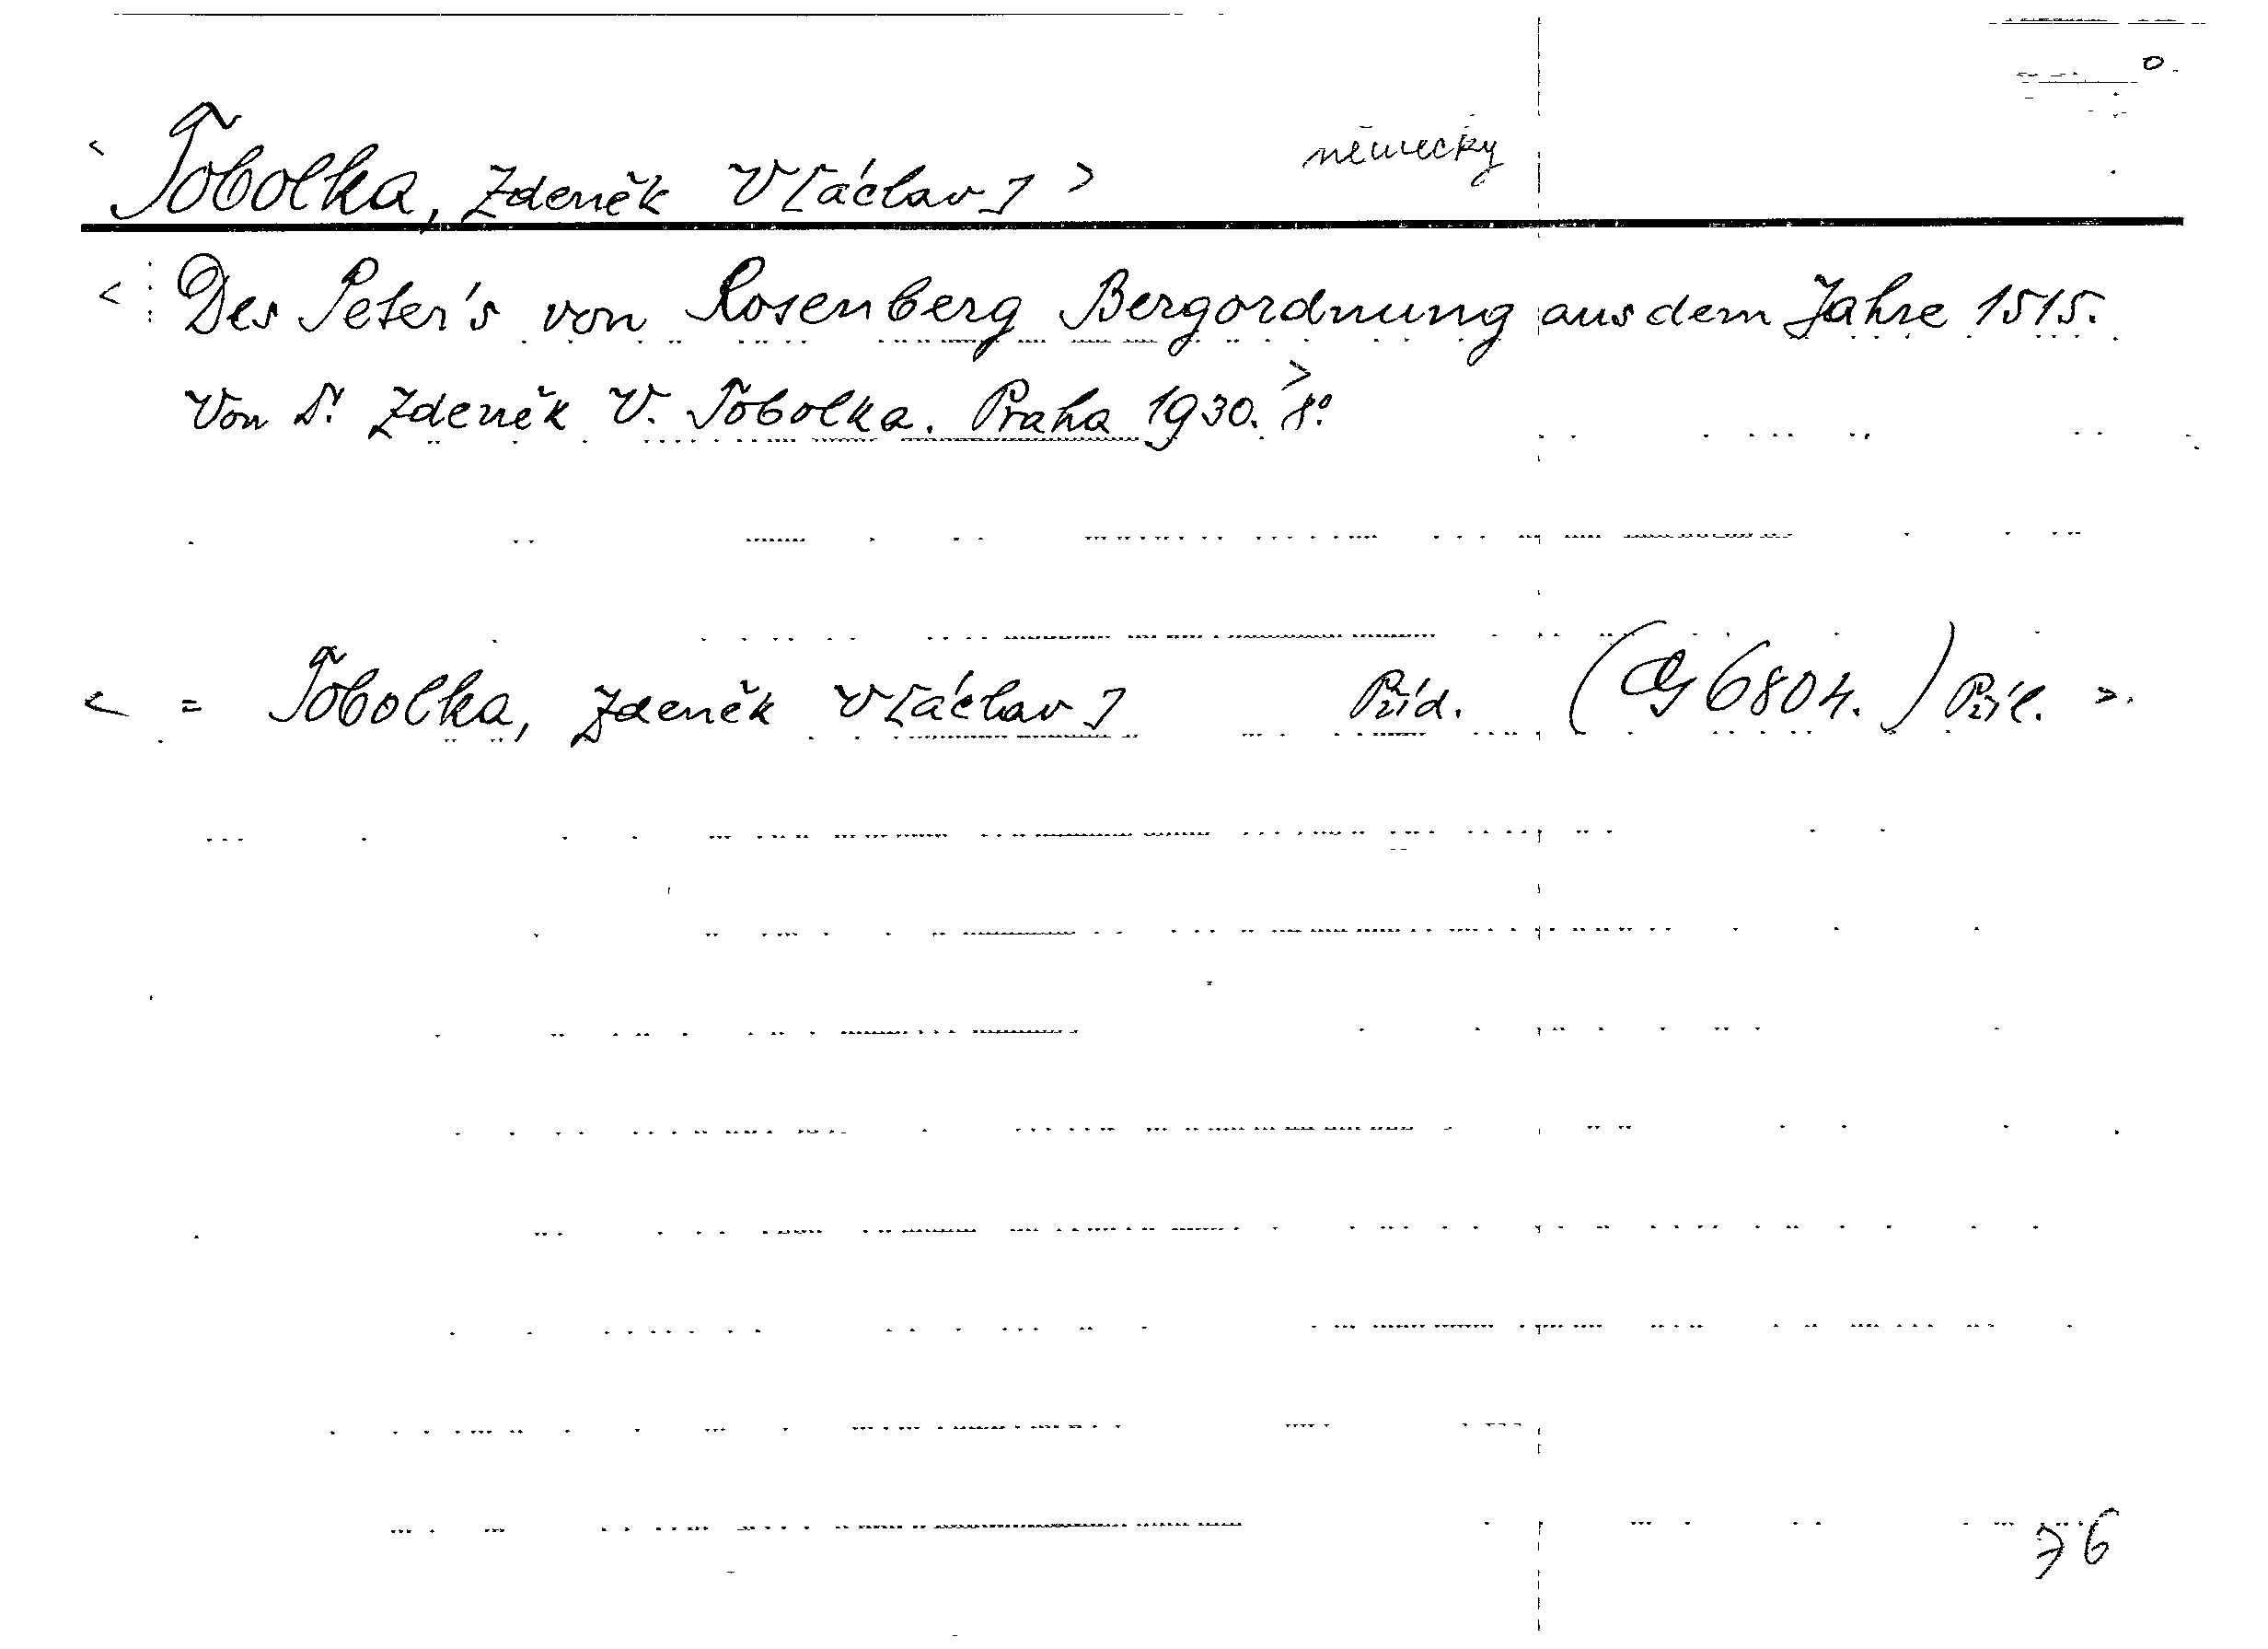 < Tobolka, Zdeněk V[áclav] > německy
< Des Peter's von Rosenberg Bergordnung aus dem Jahre 1515.
Von Dr. Zdeněk V. Tobolka. Praha 1930. > 8°.
< = Tobolka, Zdeněk V[áclav] Příd. (G 6804.) Příl. >.
76